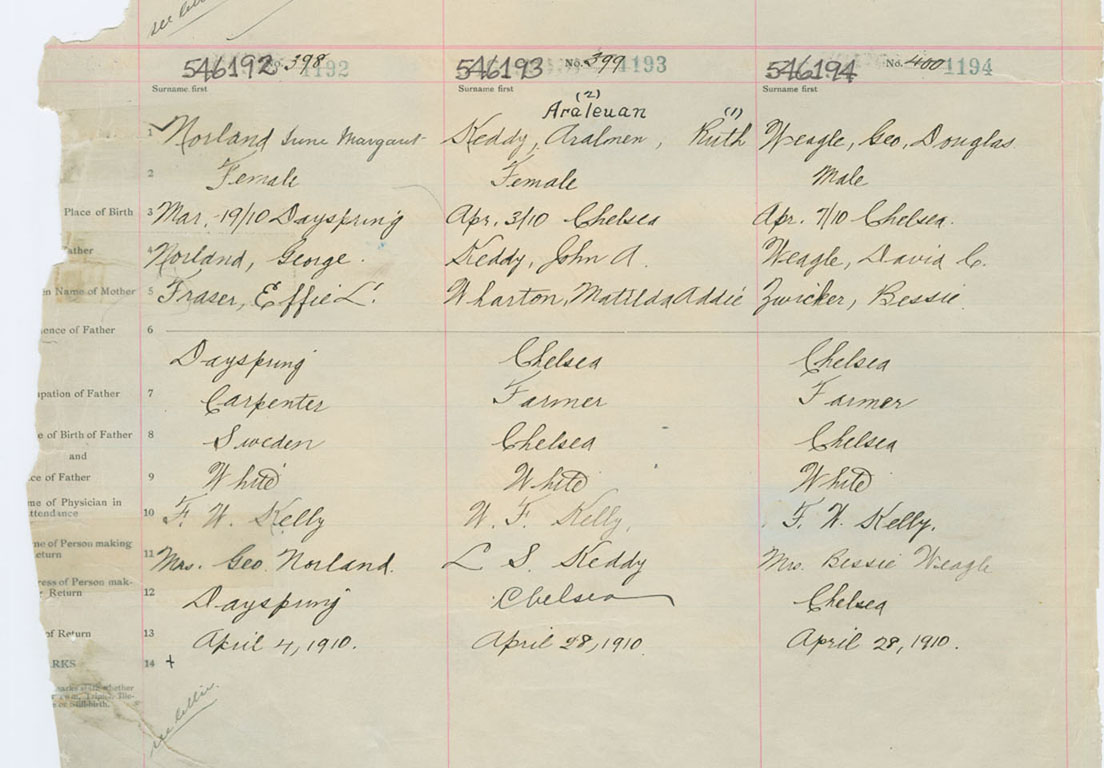 546192 No. 398 1192 546193 No. 399 1193 546194 No. 400 1194
Surname first Surname first Surname first
(2)
Araleuan (1)
1 Norland June Margaret Keddy, Aralmen, Ruth Weagle, Geo, Douglas.
2 Female Female Male
Place of Birth 3 Mar. 19/10 Dayspring Apr. 3/10 Chelsea Apr. 7/10 Chelsea.
ather 4 Norland, George. Keddy, John A. Weagle, David C.
en Name of Mother 5 Fraser, Effie L. Wharton, Matilda Addie Zwicker, Bessie
ence of Father 6
Dayspring Chelsea Chelsea
upation of Father 7 Carpenter Farmer Farmer
e of Birth of Father 8 Sweden Chelsea Chelsea
and
ce of Father 9 White White White
me of Physician in
ttendance 10 F. W. Kelly W. F. Kelly, F. W. Kelly.
me of Person making
eturn 11 Mrs. Geo Norland. L S. Keddy Mrs. Bessie Weagle
ress of Person mak-
r Return 12 Dayspring Chelsea Chelsea
of Return 13 April 4, 1910. April 28, 1910. April 28, 1910.
RKS 14 +
marks state whether
or Stillbirth.